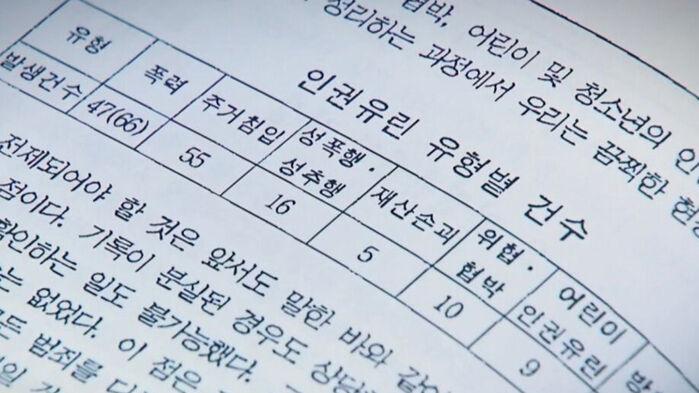 협박, 어린이 및 청소년의
정리하는 과정에서 우리는 끔찍한
인권유린 유형별 건수
유형 폭력 주거침입 성폭행· 성추행 재산손괴 위협· 협박 어린이 인권유린
발생건수 47(66) 55 16 5 10 9
전제되어야 할 것은 앞서도 말한 바와
점이다. 기록이 분실된 경우도
확인하는 일도 불가능했다.
는 없었다. 이 점은
범죄를